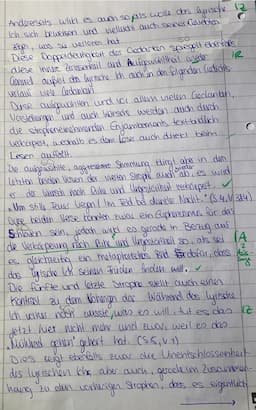 Andererseits wirkt es auch so, als wolle das lyrische 1Z
Ich sich beweisen und vielleicht auch seinen
zeigen, was es verloren hat.
Diese Doppeldeutigkeit des Gedanken spiegelt ebenfalls
diese innere Zerrissenheit und Aufgewühltheit wieder 1R
kämpft das lyrische Ich auch in den folgenden Gedichts-
verlauf viele Gedanken.
Diese ausgewählten und vor allem vielen Gedanken,
und auch Wünsche werden auch durch
die strophenübergreifenden Enjambements textbildlich
verkörpert, weshalb es dem Leser auch direkt beim
Lesen auffällt.
Die aufgewühlte, aggressive Stimmung dringt aber in den
letzten beiden Versen der vierten Strophe auch ab, es wird
er der Wunsch nach Ruhe und Ungestörtheit verkörpert.
"Um still Texas Vergnü im Feld bei dunkler Nacht." (S. 4, V. 3&4)
Diese beiden Verse könnten zwar ein Euphemismus für das
Sterben sein, jedoch wirkt es gerade in Bezug auf
die Verkörperung nach Ruhe und Ungestörtheit so, als sei 1A
es gleichzeitig ein metaphorisches Bild dafür, dass
das lyrische Ich seinen Frieden finden will.
Die fünfte und letzte Strophe stellt auch einen
Kontrast zu dem Vorherigen dar. Während das lyrische
Ich vorher noch wusste, was es will, tut es das 1Z
jetzt hier nicht mehr und zwar, weil es das
"Mühlrad gehen" gehört hat. (S. 5, V. 1)
Dies zeigt ebenfalls zwar die Unentschlossenheit
des lyrischen Ichs, aber auch, gerade im Zusammen-
hang zu den vorherigen Strophen, dass es eigentlich